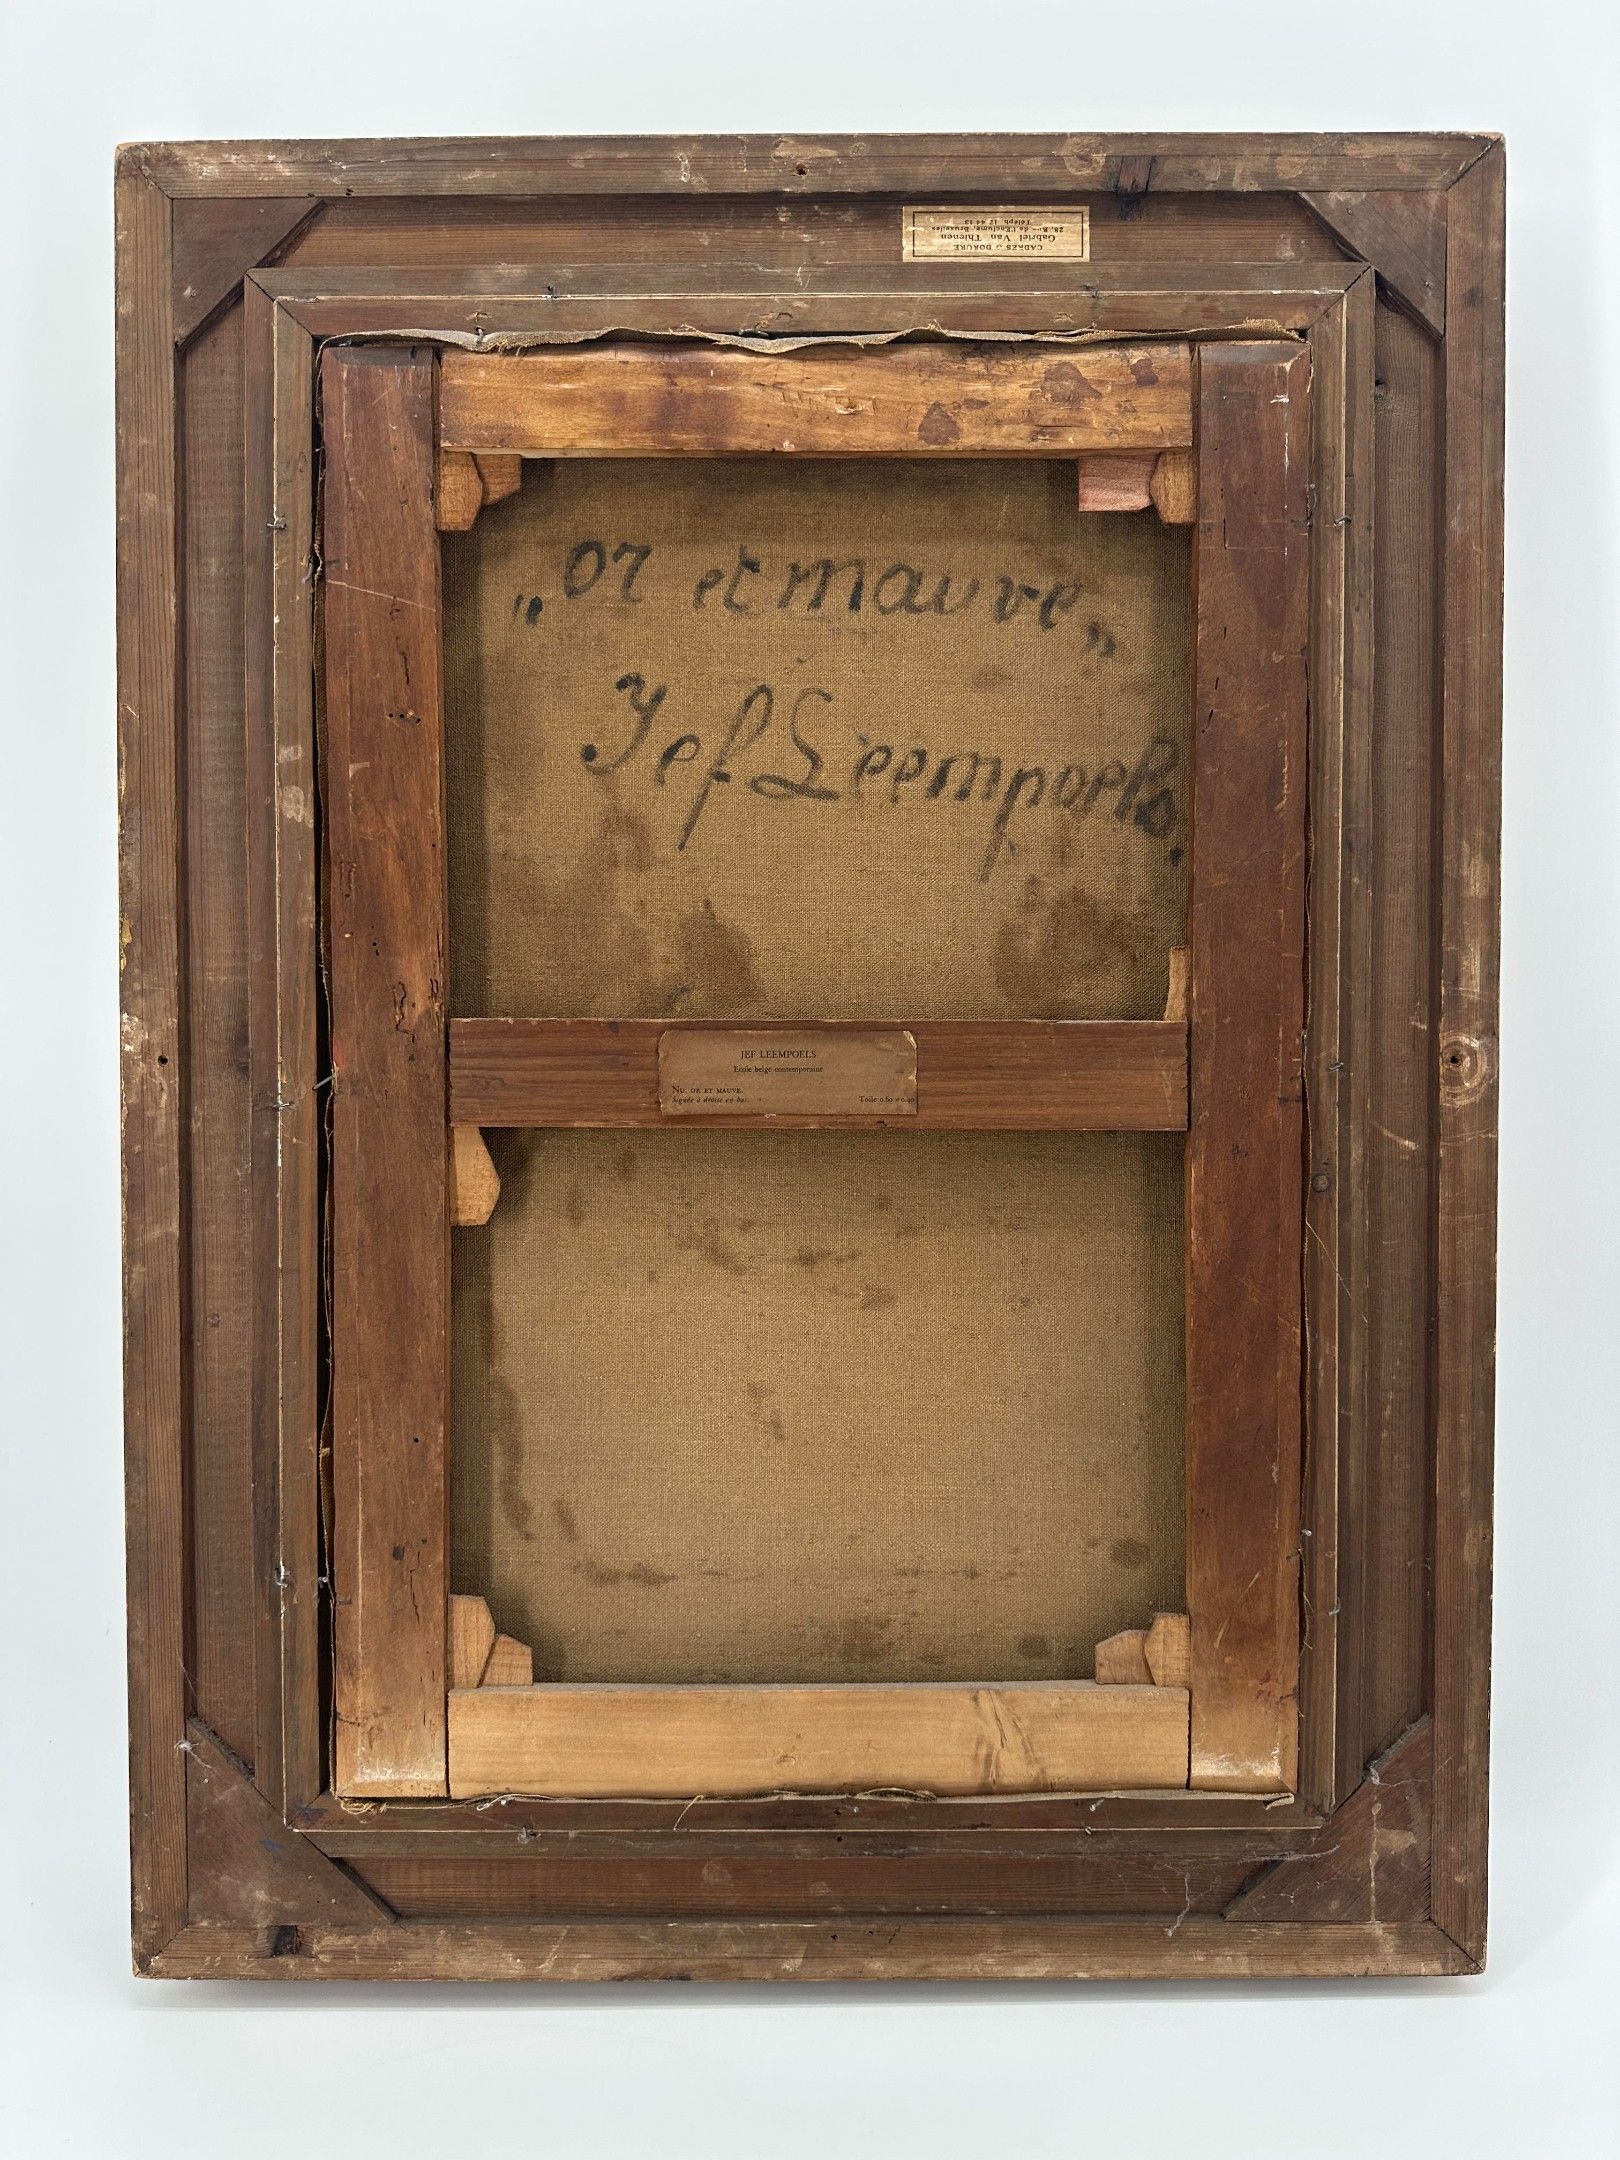 CADRES & DORURE
Gabriel Van Thienen
28, Rue de l'Enclume, Bruxelles
Téléph. 12 44 13
„or et mauve„
Jef Leempoels.
JEF LEEMPOELS
Ecole belge contemporaine
NU. OR ET MAUVE.
Signée à droite en bas.
Toile 0.60 × 0.40